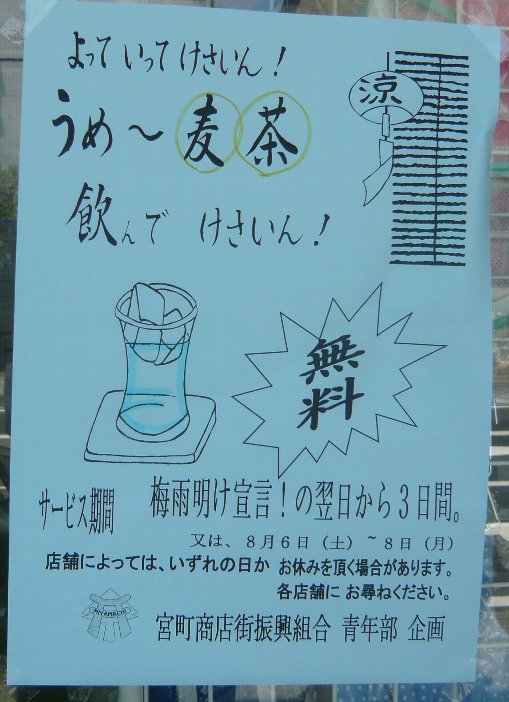 よっていってけさいん!
うめ～麦茶
飲んで けさいん!
涼
無料
サービス期間 梅雨明け宣言!の翌日から3日間。
又は、8月6日(土)~8日(月)
店舗によっては、いずれの日か お休みを頂く場合があります。
各店舗に お尋ねください。
MIYAMACHI
宮町商店街振興組合 青年部 企画